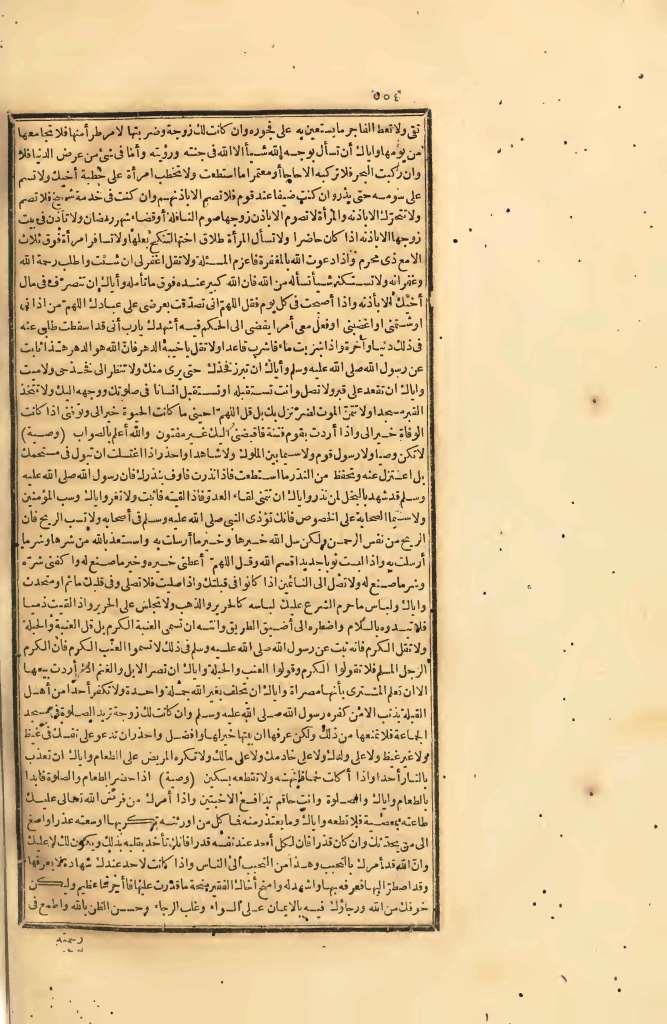 ٥٠٤
تقى ولا تعط الفاجر ما يستعين به على فجوره وان كانت لك زوجة وضربتها لامر طرأ منها فلا تجامعها
من يومها واياك أن تسأل بوجه الله شيأ الا الله فى جنته ورؤيته وأما فى شئ من عرض الدنيا فلا
وان ركبت البحر فلا تركبه الا حاجا أو معتمرا ما استطعت ولا تخطب امرأة على خطبة أخيك ولا تسم
على سومه حتى يذر وان كنت ضيفا عند قوم فلا تصم الا باذنهم وان كنت فى خدمة شيخ فلا تصم
ولا تتحرك الا باذنه والمرأة لا تصوم الا باذن زوجها صوم النافلة أو قضاء شهر رمضان ولا تأذن فى بيت
زوجها الا باذنه اذا كان حاضرا ولا تسأل المرأة طلاق اختها لتنكح بعلها ولا تسافر امرأة فوق ثلاث
الا مع ذى محرم واذا دعوت الله بالمغفرة فاعزم المسئلة ولا تقل اغفر لى ان شئت واطلب رحمة الله
وغفرانه ولا تستكثر شيأ تسأله من الله فان الله كبير عنده فوق ما تأمله واياك ان تتصرف فى مال
أخيك الا باذنه واذا أصبحت فى كل يوم فقل اللهم انى تصدقت بعرضى على عبادك اللهم من اذانى
او شتمنى او اغضبنى او فعل معى أمرا يفضى الى الحكم فيه أشهدك يارب أنى قد اسقطت طلبى عنه
فى ذلك دنيا وآخرة واذا شربت ماء فاشرب قاعدا ولا تقل يا خيبة الدهر فان الله هو الدهر هذا ثابت
عن رسول الله صلى الله عليه وسلم واياك ان تبرز فخذك حتى يرى منك ولا تنظر الى فخذ حى ولا ميت
واياك ان تقعد على قبر ولا تصل وانت تستقبله او تستقبل انسانا فى صلاتك ووجهه اليك ولا تتخذ
القبر مسجدا ولا تتمن الموت لضر نزل بك بل قل اللهم احينى ما كانت الحيوة خيرا لى وتوفنى اذا كانت
الوفاة خيرا لى واذا أردت بقوم فتنة فاقبضنى اليك غير مفتون والله أعلم بالصواب (وصية)
لا تكن وصيا ولا رسول قوم ولا سيما بين الملوك ولا شاهدا واحذر اذا اغتسلت ان تبول فى مستحمك
بل اعتزل عنه وتحفظ من النذر ما استطعت فاذا نذرت فاوف بنذرك فان رسول الله صلى الله عليه
وسلم قد شهد بالبخل لمن نذر واياك ان تتمنى لقاء العدو فاذا لقيته فاثبت ولا تفر واياك وسب المؤمنين
ولا سيما الصحابة على الخصوص فانك تؤذى النبى صلى الله عليه وسلم فى أصحابه ولا تسب الريح فان
الريح من نفس الرحمن ولكن سل الله خيرها وخير ما أرسلت به واستعذ بالله من شرها وشر ما
أرسلت به واذا لبست ثوبا جديدا قسم الله وقل اللهم أعطنى خيره وخير ما صنع له واكفنى شره
وشر ما صنع له ولا تصل الى النائمين اذا كانوا فى قبلتك واذا صليت فلا تصلى وفى قلبك مأثم او متحدث
واياك ولباس ما حرم الشرع عليك لباسه كالحرير والذهب ولا تجلس على الحرير واذا لقيت ذميا
فلا تبدءوه بالسلام واضطره الى أضيق الطريق وانتبه ان تسمى العنبة الكرم بل قل العنبة والحبلة
ولا تقل الكرم فانه ثبت عن رسول الله صلى الله عليه وسلم فى ذلك لا تسموا العنب الكرم فان الكرم
الرجل المسلم فلا تقولوا الكرم وقولوا العنب والحبلة واياك ان تصر الابل والغنم اذا أردت بيعها
الا ان تعلم المشترى بأنها مصراة واياك ان تحلف بغير الله جملة واحدة ولا تكفر أحدا من أهل
القبلة بذنب الا من كفره رسول الله صلى الله عليه وسلم وان كانت لك زوجة تريد الصلوة فى مسجد
الجماعة فلا تمنعها من ذلك ولكن عرفها ان بيتها خير لها وافضل واحذر ان تدعو على نفسك فى غيظ
ولا غير غيظ ولا على ولدك ولا على خادمك ولا على مالك ولا تكره المريض على الطعام واياك ان تعذب
بالنار أحدا واذا أكلت لحما فانهسه ولا تقطعه بسكين (وصية) اذا حضر الطعام والصلوة فابدأ
بالطعام واياك والصلوة وانت حاقم تدافع الاخبثين واذا أمرك من فرض الله تعالى عليك
طاعته بمعصية فلا تطعه واياك وما يعتذر منه فما كل من اورثته نكرة يها اوسعته عذرا واصغ
الى من يحدثك وان كان قدرا فان لكل أحد عند نفسه قدرا فانك تأخذ بقلبه بذلك ويكون لك لا عليك
وان الله قد أمرك بالتحبب وهذا من التحبب الى الناس واذا كانت لاحد عندك شهادة لا يعرفها
وقد اضطر اليها فعرفه بها واشهد له وامنح أخاك الفقير منحة ما قدرت عليها فأجرها عظيم وليكن
خوفك من الله ورجاؤك فيه بالايمان على السواء وغلب الرجاء وحسن الظن بالله واطمع فى
رحمته